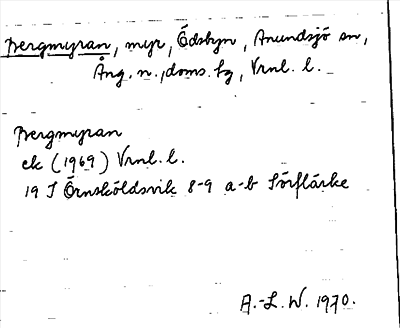 Bergmyran, myr, Ödsbyn, Anundsjö sn,
Ång. n., doms. fg, Vrnl. l.
Bergmyran
ek (1969) Vrnl. l.
19 J Örnsköldsvik 8-9 a-b Sörflärke
A.-L. W. 1970.